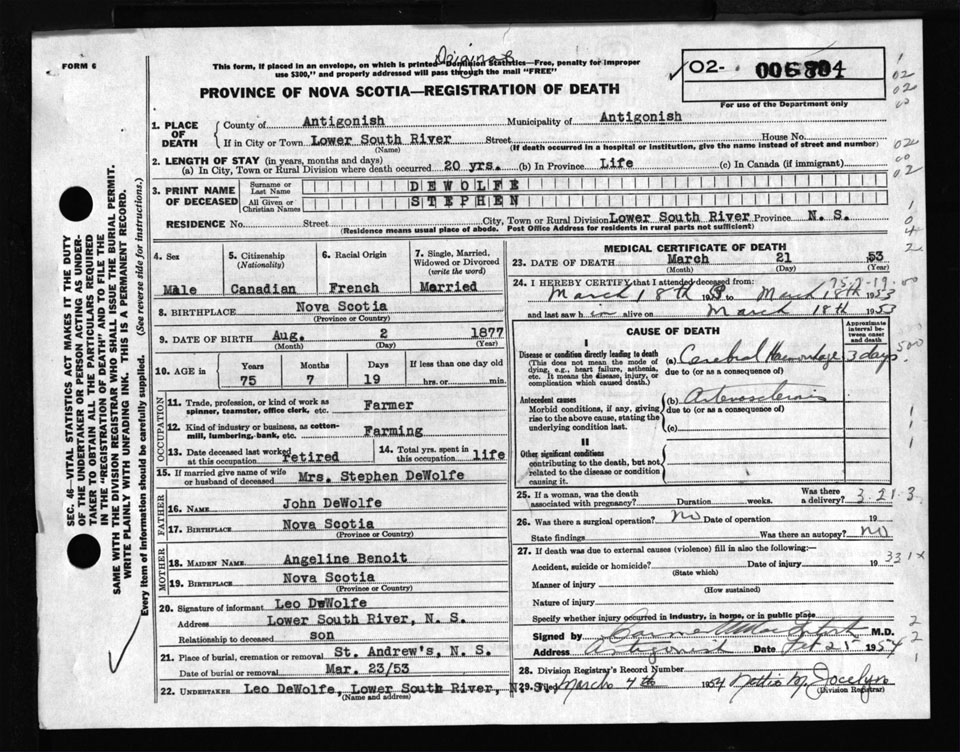 FORM 6
Original
This form, if placed in an envelope, on which is printed "Dominion Statistics—Free, penalty for improper
use $300," and properly addressed will pass through the mail "FREE"
PROVINCE OF NOVA SCOTIA—REGISTRATION OF DEATH
02-
For use of the Department only
1. PLACE OF DEATH
County of Antigonish Municipality of Antigonish
If in City or Town Lower South River Street House No.
(Name) (If death occurred in a hospital or institution, give the name instead of street and number)
2. LENGTH OF STAY (in years, months and days)
(a) In City, Town or Rural Division where death occurred 20 yrs. (b) In Province Life (c) In Canada (if immigrant)
3. PRINT NAME OF DECEASED
Surname or Last Name DEWOLFE
All Given or Christian Names STEPHEN
RESIDENCE No. Street City, Town or Rural Division Lower South River Province N. S.
(Residence means usual place of abode. Post Office Address for residents in rural parts not sufficient)
4. Sex Male
5. Citizenship (Nationality) Canadian
6. Racial Origin French
7. Single, Married, Widowed or Divorced (write the word) Married
8. BIRTHPLACE Nova Scotia
(Province or Country)
9. DATE OF BIRTH Aug. 2 1877
(Month) (Day) (Year)
10. AGE in Years Months Days If less than one day old
75 7 19 hrs. or min.
OCCUPATION
11. Trade, profession, or kind of work as
spinner, teamster, office clerk, etc. Farmer
12. Kind of industry or business, as cotton-
mill, lumbering, bank, etc. Farming
13. Date deceased last worked
at this occupation retired
14. Total yrs. spent in
this occupation life
15. If married give name of wife
or husband of deceased Mrs. Stephen DeWolfe
FATHER
16. NAME John DeWolfe
17. BIRTHPLACE Nova Scotia
(Province or Country)
MOTHER
18. MAIDEN NAME Angeline Benoit
19. BIRTHPLACE Nova Scotia
(Province or Country)
20. Signature of informant Leo DeWolfe
Address Lower South River, N. S.
Relationship to deceased son
21. Place of burial, cremation or removal St. Andrew's, N. S.
Date of burial or removal Mar. 23/53
22. UNDERTAKER Leo DeWolfe, Lower South River, N. S.
(Name and address)
MEDICAL CERTIFICATE OF DEATH
23. DATE OF DEATH March 21 53
(Month) (Day) (Year)
24. I HEREBY CERTIFY that I attended deceased from:
March 18th 1953 to March 18th 1953
and last saw h im alive on March 18th 1953
CAUSE OF DEATH
Approximate interval between onset and death
I
Disease or condition directly leading to death
(This does not mean the mode of
dying, e.g., heart failure, asthenia,
etc. It means the disease, injury, or
complication which caused death.)
(a) Cerebral Haemorrhage 3 days
due to (or as a consequence of)
Antecedent causes
Morbid conditions, if any, giving
rise to the above cause, stating the
underlying condition last.
(b) Arterosclerosis
due to (or as a consequence of)
(c)
II
Other significant conditions
contributing to the death, but not
related to the disease or condition
causing it.
25. If a woman, was the death
associated with pregnancy? Duration weeks. Was there a delivery?
3-21-3
26. Was there a surgical operation? No Date of operation 19
State findings Was there an autopsy? No
27. If death was due to external causes (violence) fill in also the following:
331x
Accident, suicide or homicide? Date of injury 19
(State which)
Manner of injury
(How sustained)
Nature of injury
Specify whether injury occurred in industry, in home, or in public place
Signed by M.D.
Address Antigonish Date 1954
28. Division Registrar's Record Number
29. Filed March 4th 1954 Nettie M Jocelyn
(Division Registrar)
SEC. 46—VITAL STATISTICS ACT MAKES IT THE DUTY
OF THE UNDERTAKER OR PERSON ACTING AS UNDER-
TAKER TO OBTAIN ALL THE PARTICULARS REQUIRED
IN THE "REGISTRATION OF DEATH" AND TO FILE THE
SAME WITH THE DIVISION REGISTRAR WHO SHALL ISSUE THE BURIAL PERMIT.
WRITE PLAINLY WITH UNFADING INK. THIS IS A PERMANENT RECORD.
Every item of information should be carefully supplied. (See reverse side for instructions.)